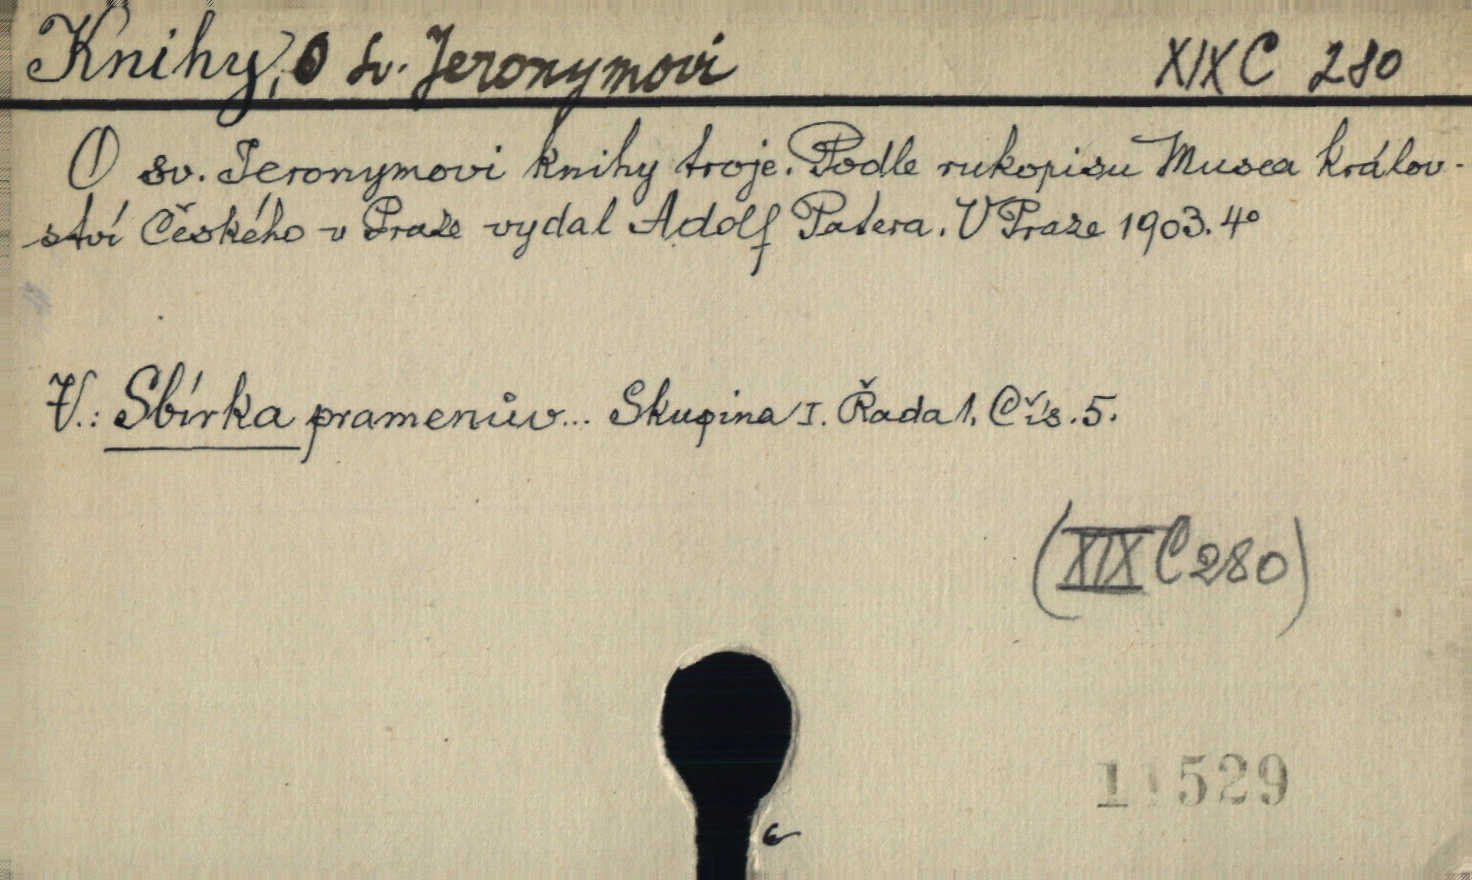 Knihy, O sv. Jeronymovi XIX C 280
O sv. Jeronymovi knihy troje. Podle rukopisu Musea králov-
ství Českého v Praze vydal Adolf Patera. V Praze 1903. 4°
V.: Sbírka pramenův... Skupina I. Řada 1. Čís. 5.
(XIX C 280)